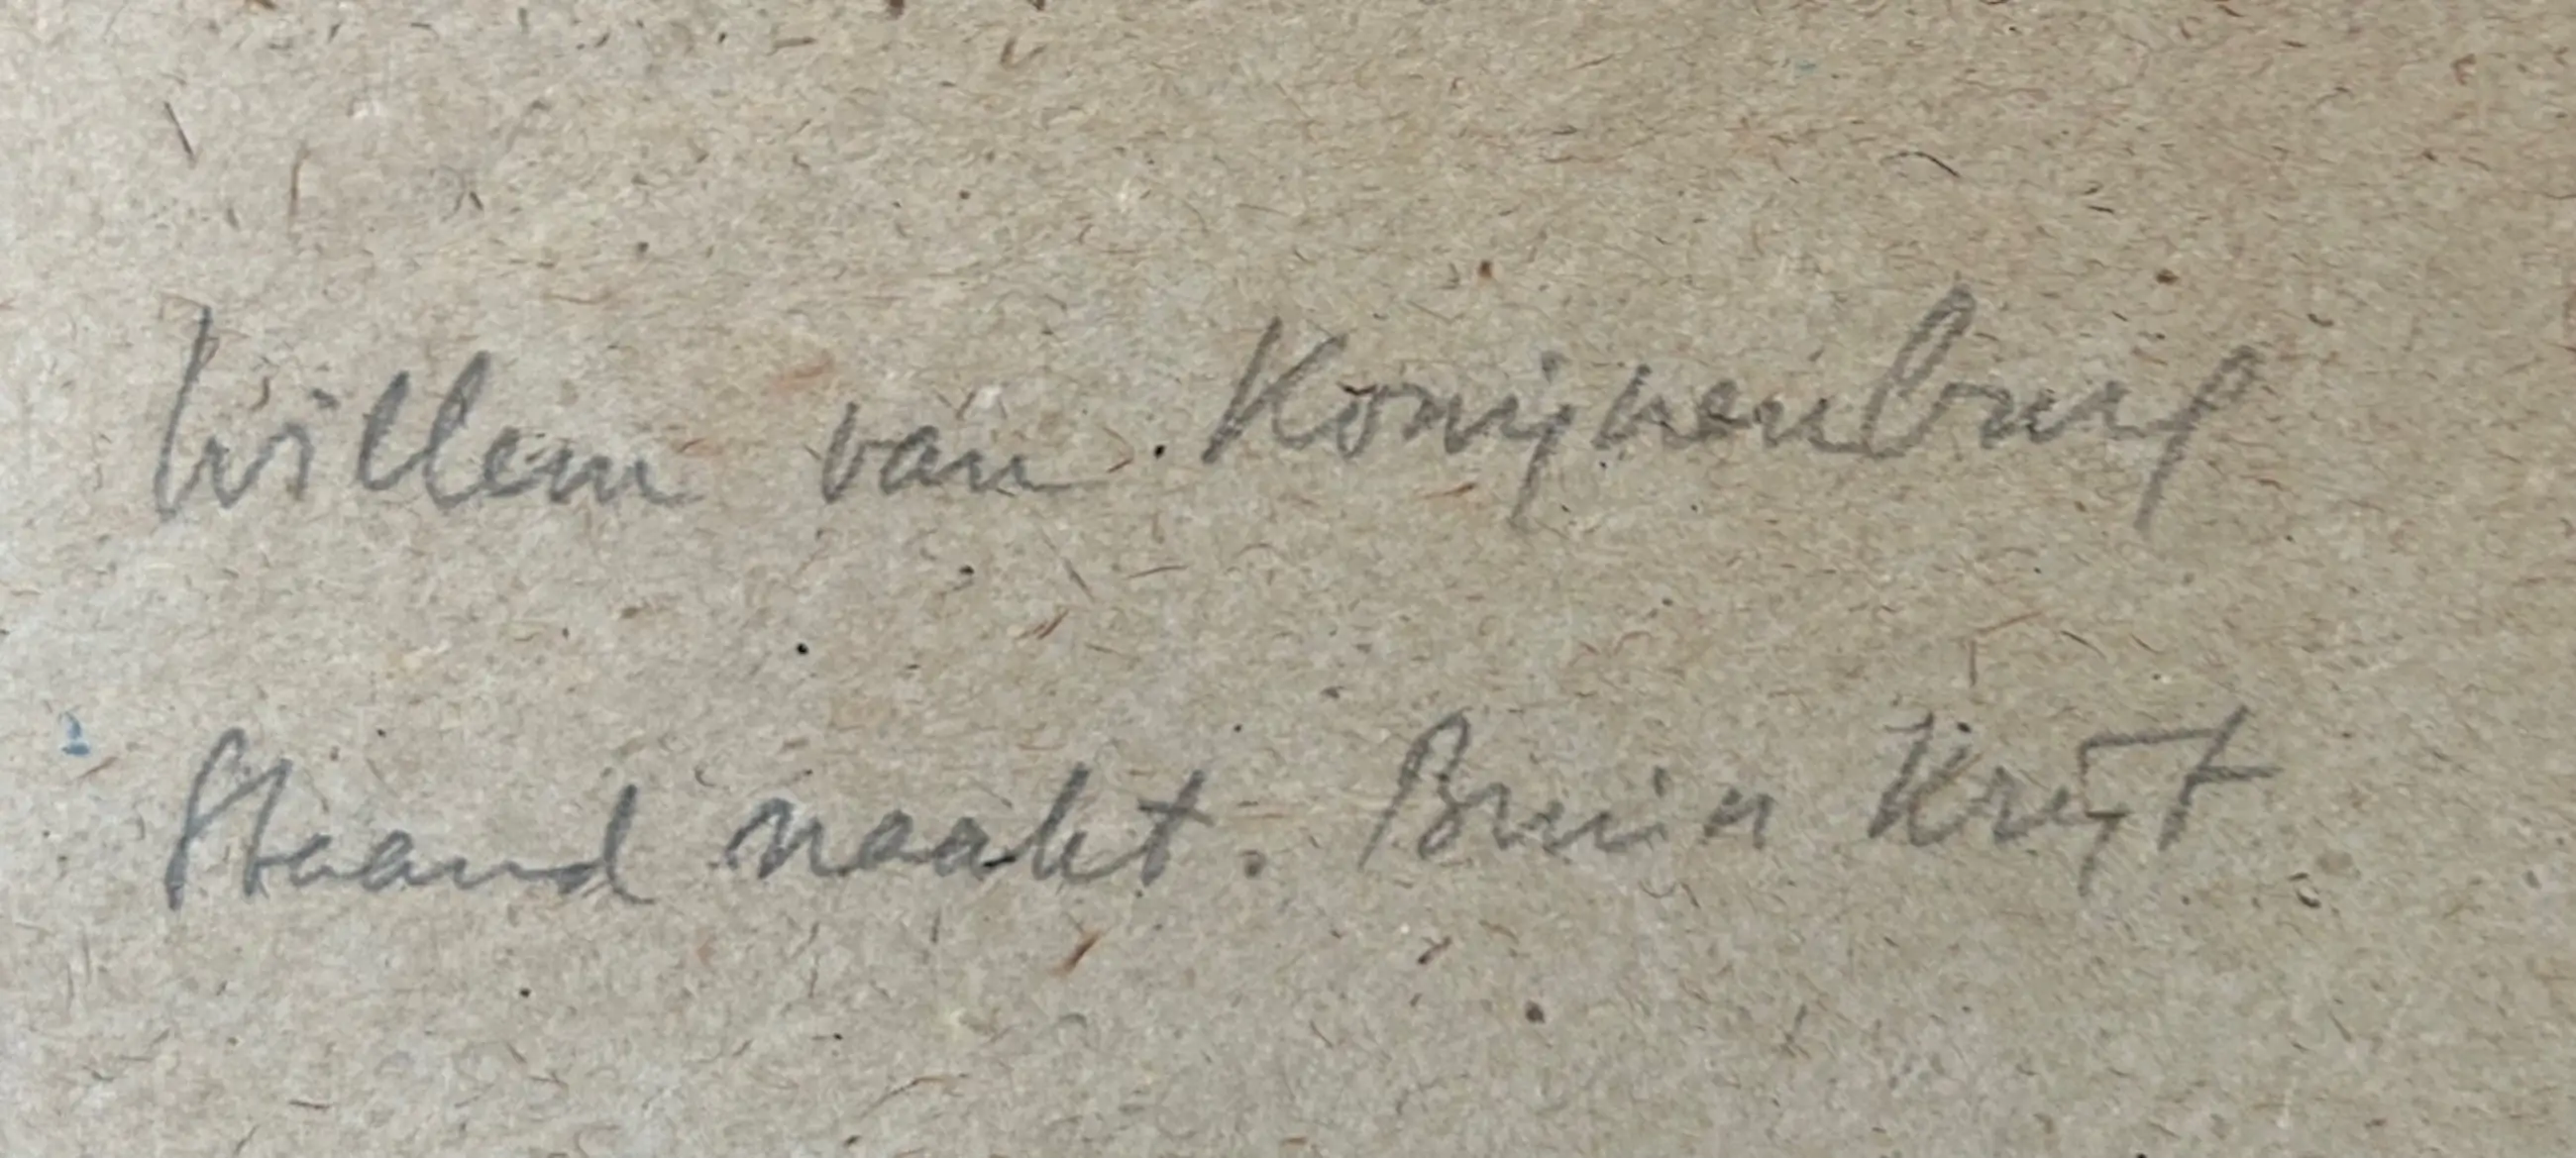 Willem van Konijnenburg
Staand naakt. Bruin Krijt